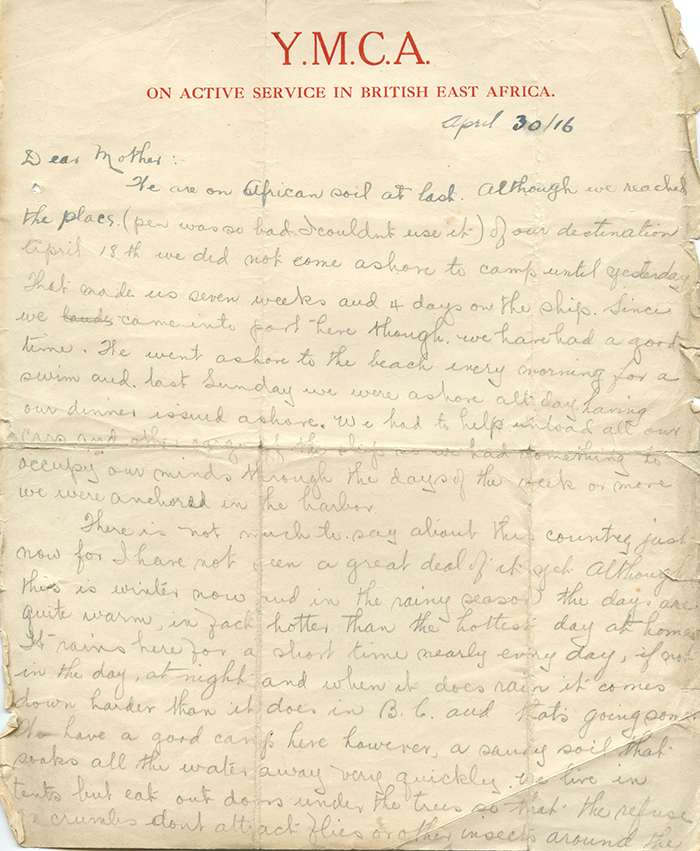 Y.M.C.A.
ON ACTIVE SERVICE IN BRITISH EAST AFRICA.
April 30/16
Dear Mother:
We are on African soil at last. Although we reached
the place (pen was so bad I couldnt use it) of our destination
April 18th we did not come ashore to camp until yesterday
That made us seven weeks and 4 days on the ship. Since
we came into port here though we have had a good
time. We went ashore to the beach every morning for a
swim and last Sunday we were ashore all day, having
our dinner issued ashore. We had to help unload all our
cars and other cargo off the ship so we had something to
occupy our minds through the days of the week or more
we were anchored in the harbor
There is not much to say about this country just
now for I have not seen a great deal of it yet. Although
this is winter now and in the rainy season the days are
quite warm, in fact hotter than the hottest day at home
It rains here for a short time nearly every day, if not
in the day, at night and when it does rain it comes
down harder than it does in B.C. and thats going some
We have a good camp here however, a sandy soil that
soaks all the water away very quickly. We live in
tents but eat out doors under the trees so that the refuse
or crumbs dont attract flies or other insects around the